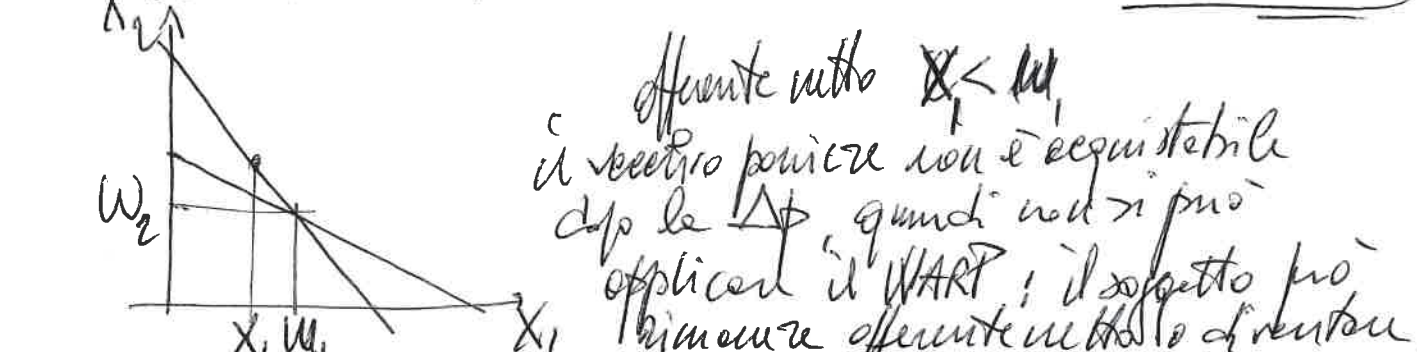 X₂
offerente netto X₁ < W₁
il vecchio paniere non è acquistabile
dopo la Δp, quindi non si può
W₂
applicare il WARP: il soggetto può
X₁ W₁ X₁ rimanere offerente netto o diventare